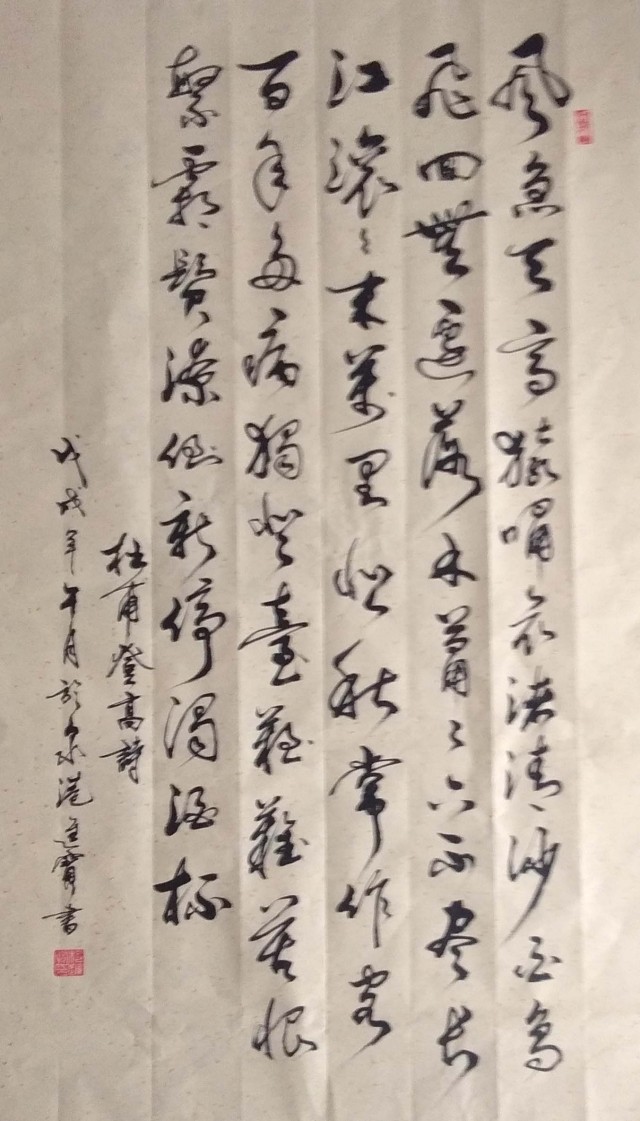 风急天高猿嘯哀渚清沙白鸟
飛回無邊落木萧〻下不尽长
江滚〻来萬里悲秋常作客
百年多病獨登臺艱難苦恨
繁霜鬢潦倒新停濁酒杯
杜甫登高詩
戊戌年午月於港書